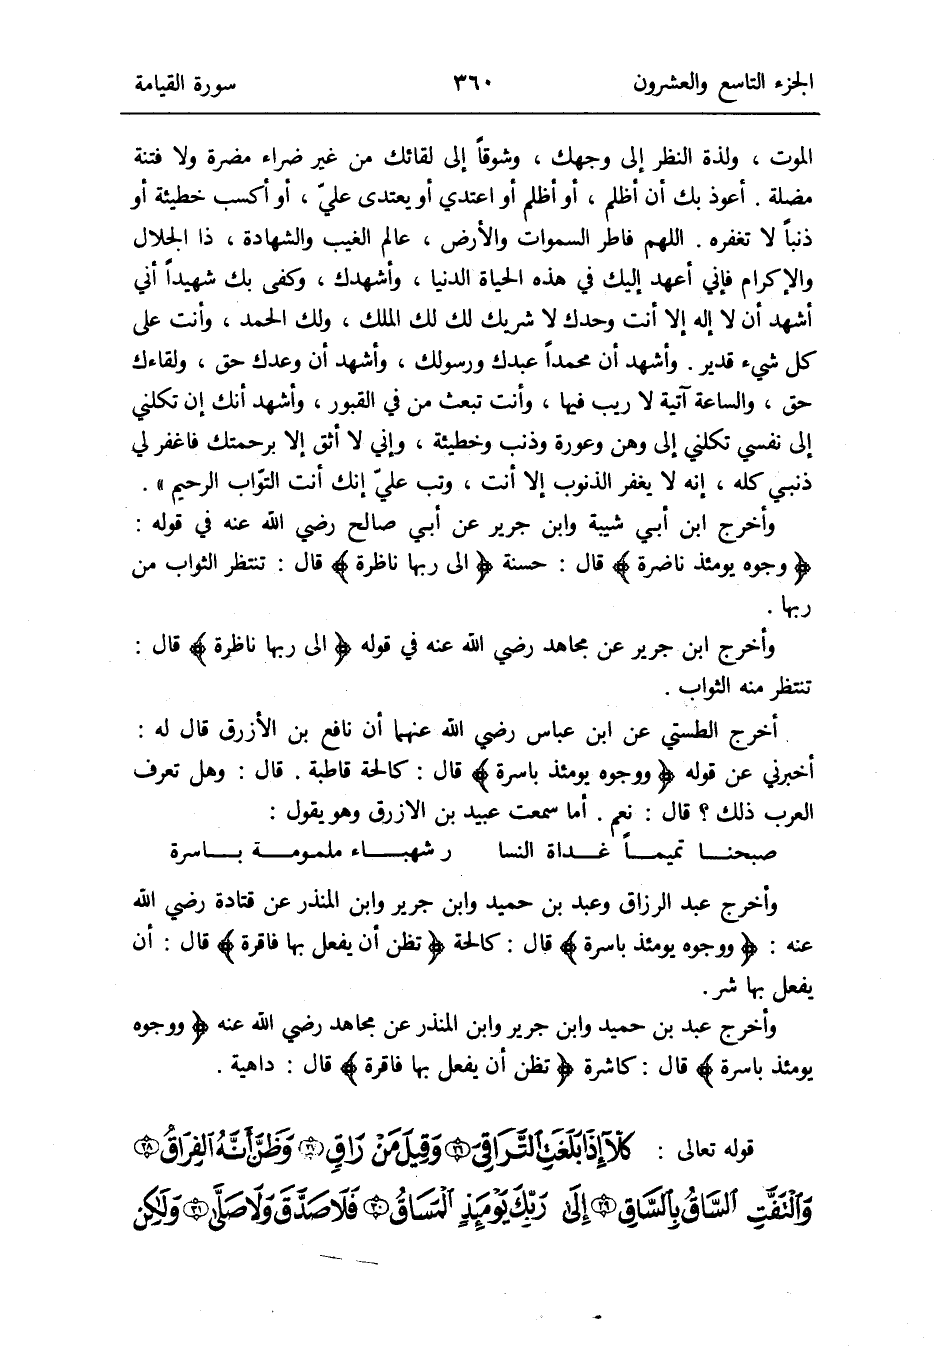 الجزء التاسع والعشرون ٣٦٠ سورة القيامة
الموت ، ولذة النظر إلى وجهك ، وشوقاً إلى لقائك من غير ضراء مضرة ولا فتنة
مضلة . أعوذ بك أن أظلم ، أو أظلم أو اعتدي أو يعتدى عليّ ، أو أكسب خطيئة أو
ذنباً لا تغفره . اللهم فاطر السموات والأرض ، عالم الغيب والشهادة ، ذا الجلال
والإكرام فإني أعهد إليك في هذه الحياة الدنيا ، وأشهدك ، وكفى بك شهيداً أني
أشهد أن لا إله إلا أنت وحدك لا شريك لك لك الملك ، ولك الحمد ، وأنت على
كل شيء قدير . وأشهد أن محمداً عبدك ورسولك ، وأشهد أن وعدك حق ، ولقاءك
حق ، والساعة آتية لا ريب فيها ، وأنت تبعث من في القبور ، وأشهد أنك إن تكلني
إلى نفسي تكلني إلى وهن وعورة وذنب وخطيئة ، وإني لا أثق إلا برحمتك فاغفر لي
ذنبي كله ، إنه لا يغفر الذنوب إلا أنت ، وتب عليّ إنك أنت التوّاب الرحيم » .
وأخرج ابن أبي شيبة وابن جرير عن أبي صالح رضي الله عنه في قوله :
﴿ وجوه يومئذ ناضرة ﴾ قال : حسنة ﴿ الى ربها ناظرة ﴾ قال : تنتظر الثواب من
ربها .
وأخرج ابن جرير عن مجاهد رضي الله عنه في قوله ﴿ الى ربها ناظرة ﴾ قال :
تنتظر منه الثواب .
أخرج الطستي عن ابن عباس رضي الله عنهما أن نافع بن الأزرق قال له :
أخبرني عن قوله ﴿ ووجوه يومئذ باسرة ﴾ قال : كالحة قاطبة . قال : وهل تعرف
العرب ذلك ؟ قال : نعم . أما سمعت عبيد بن الازرق وهو يقول :
صبحنا تميماً غداة النسا ر شهباء ملمومة باسرة
وأخرج عبد الرزاق وعبد بن حميد وابن جرير وابن المنذر عن قتادة رضي الله
عنه : ﴿ ووجوه يومئذ باسرة ﴾ قال : كالحة ﴿ تظن أن يفعل بها فاقرة ﴾ قال : أن
يفعل بها شر .
وأخرج عبد بن حميد وابن جرير وابن المنذر عن مجاهد رضي الله عنه ﴿ ووجوه
يومئذ باسرة ﴾ قال : كاشرة ﴿ تظن أن يفعل بها فاقرة ﴾ قال : داهية .
قوله تعالى : كَلَّا إِذَا بَلَغَتِ التَّرَاقِيَ ٢٦ وَقِيلَ مَنْ رَاقٍ ٢٧ وَظَنَّ أَنَّهُ الْفِرَاقُ ٢٨
وَالْتَفَّتِ السَّاقُ بِالسَّاقِ ٢٩ إِلَىٰ رَبِّكَ يَوْمَئِذٍ الْمَسَاقُ ٣٠ فَلَا صَدَّقَ وَلَا صَلَّىٰ ٣١ وَلَٰكِن